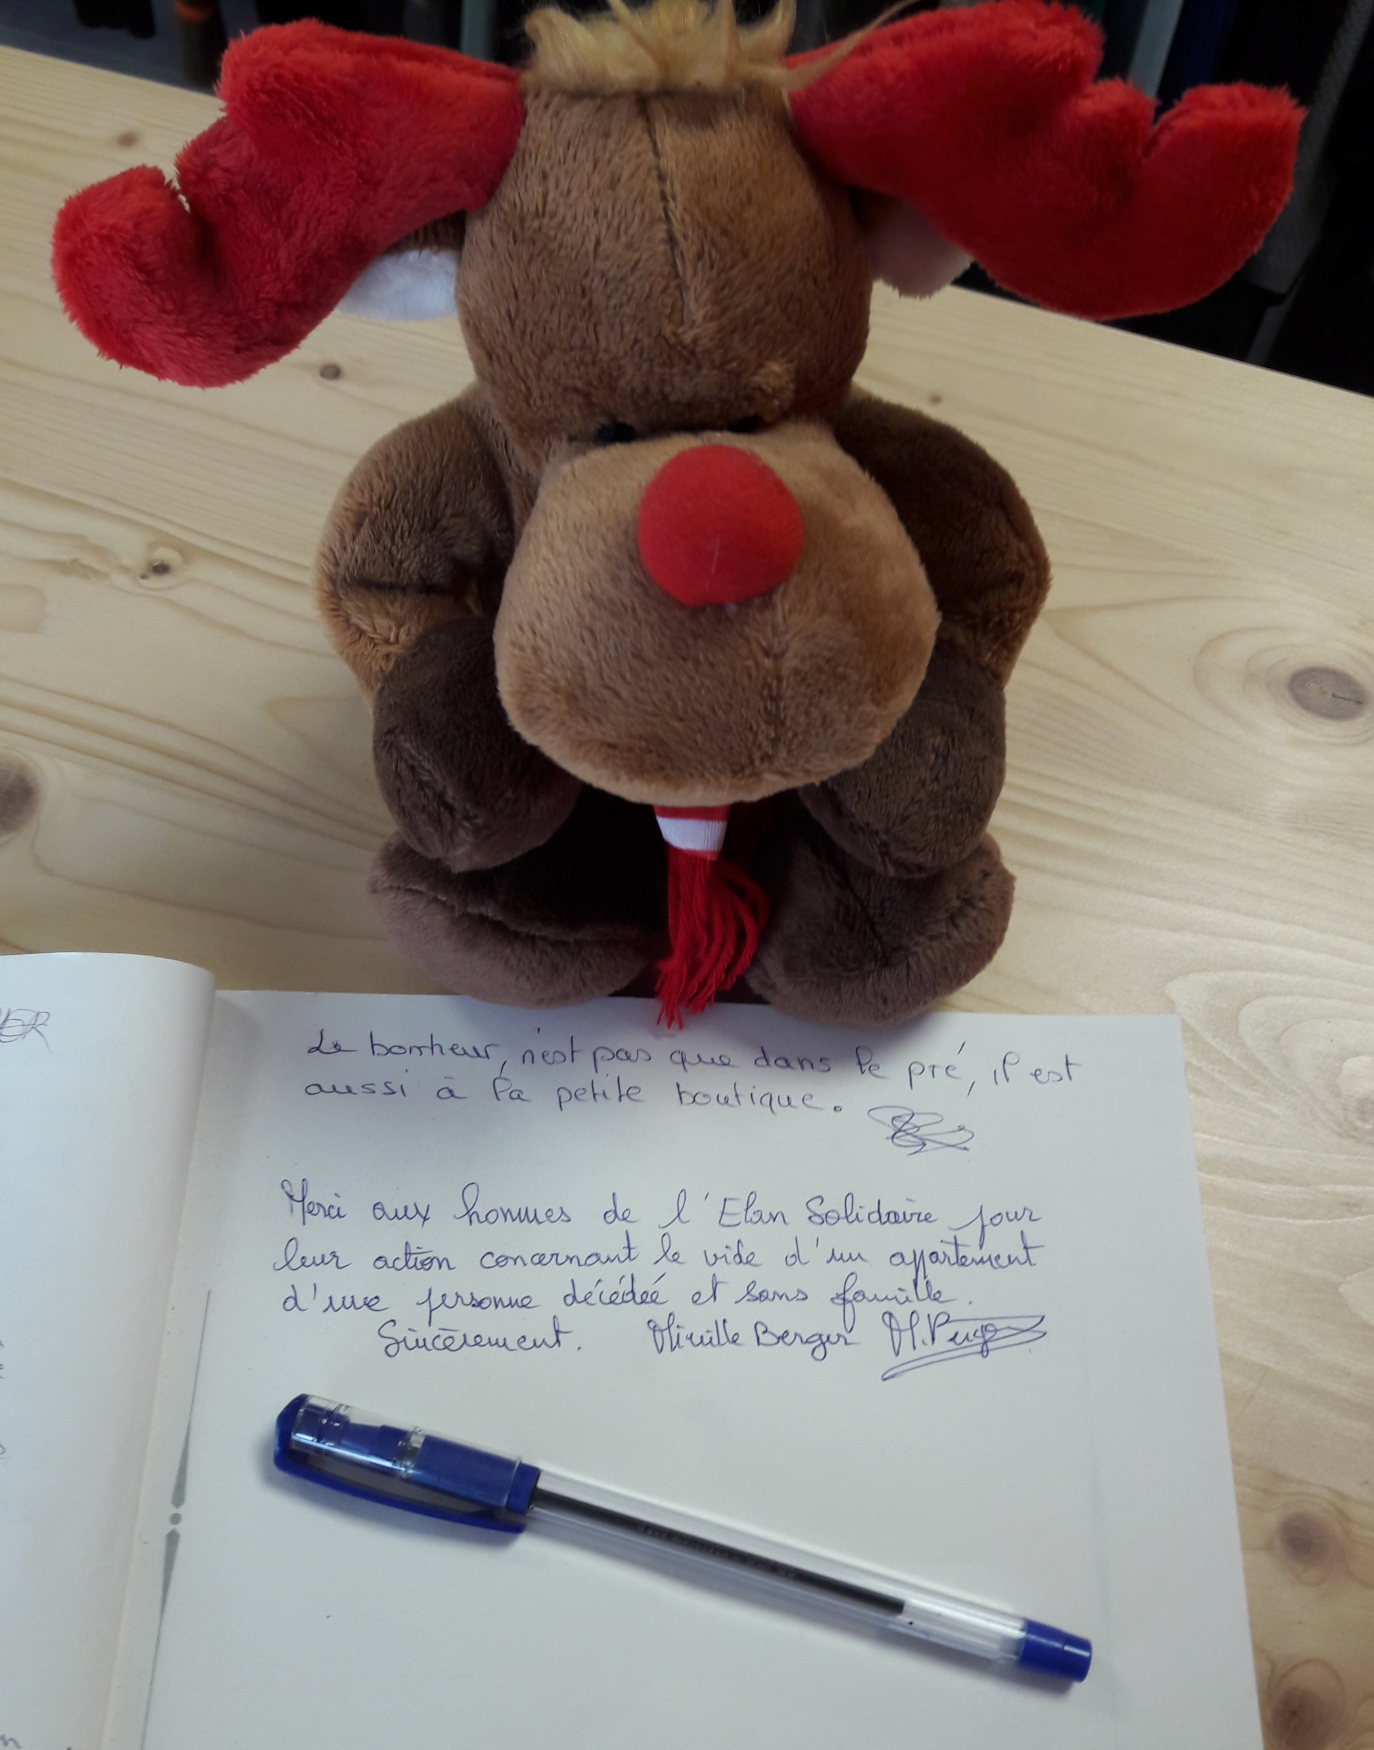 Le bonheur, n'est pas que dans le pré, il est
aussi à la petite boutique.
Merci aux hommes de l'Elan Solidaire pour
leur action concernant le vide d'un appartement
d'une personne décédée et sans famille.
Sincèrement. Mireille Berger M. Berger